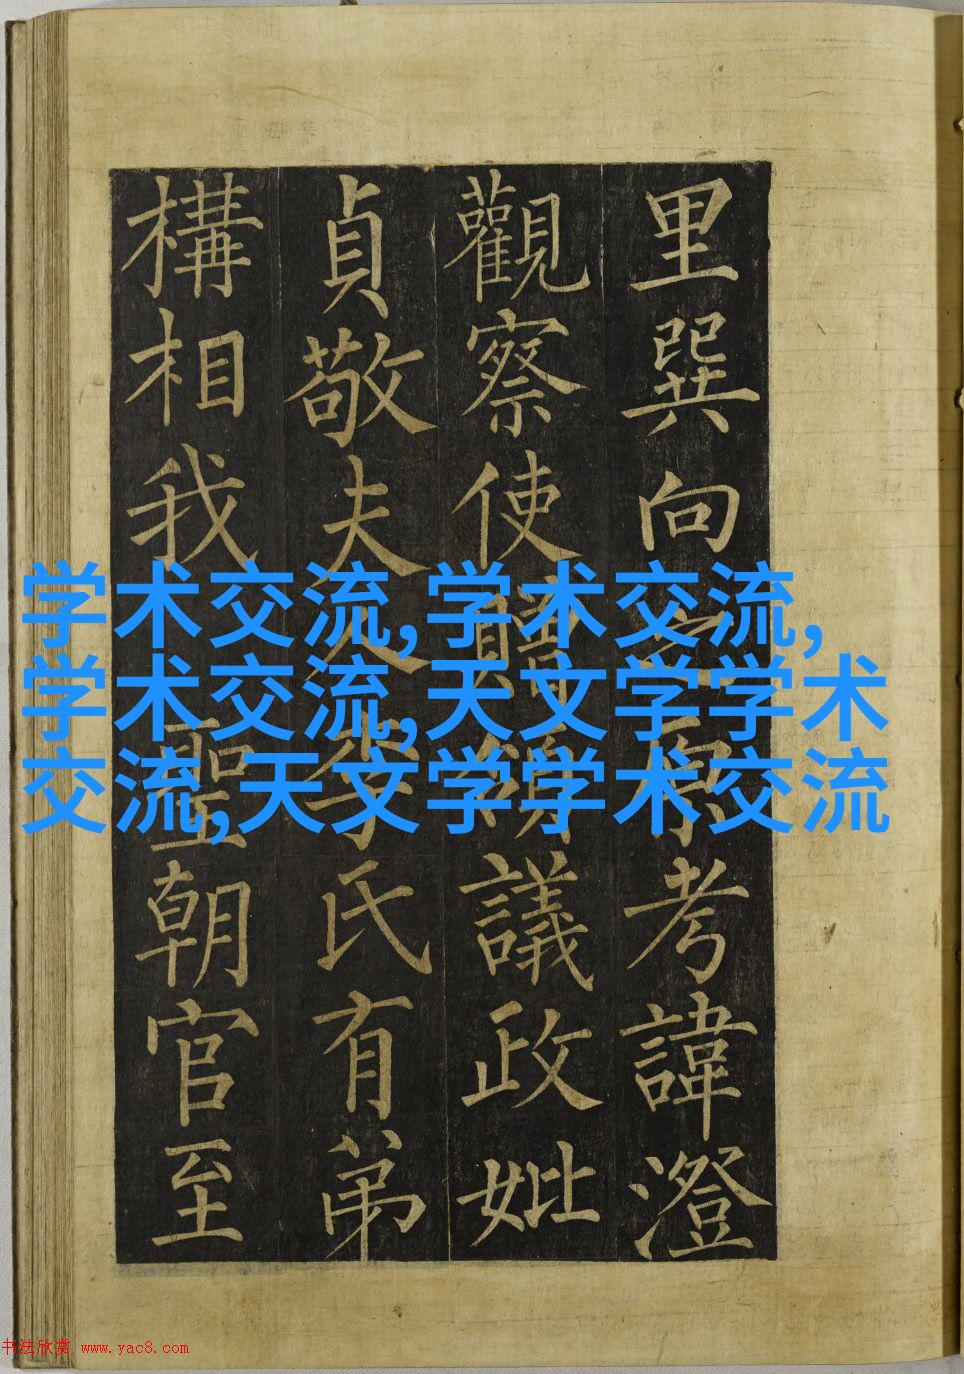 里巽向考諱澄
觀察使贈領議政妣
貞敬夫人李氏有弟
構相我聖朝官至
学术交流,学术交流,
学术交流,天文学学术
交流,天文学学术交流
书法欣赏 www.yac8.com